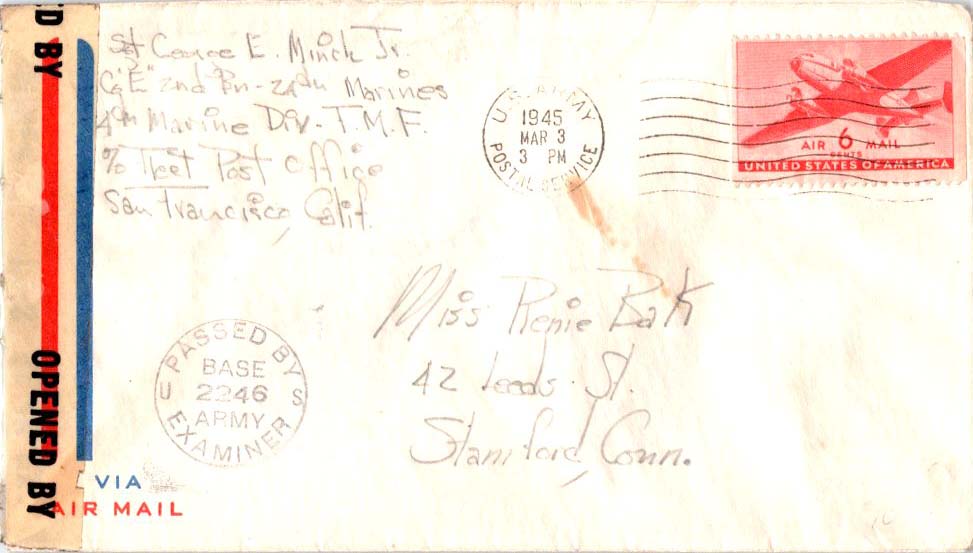 Sgt George E. Minick Jr.
Co "E" 2nd Bn - 24th Marines
4th Marine Div - F.M.F.
c/o Fleet Post Office
San Francisco, Calif.
U.S. ARMY
1945
MAR 3
3 PM
POSTAL SERVICE
AIR 6 MAIL
CENTS
UNITED STATES OF AMERICA
Miss Renie Batt
42 Leeds St.
Stamford, Conn.
PASSED BY
BASE
U 2246 S
ARMY
EXAMINER
ED BY
OPENED BY
VIA
AIR MAIL